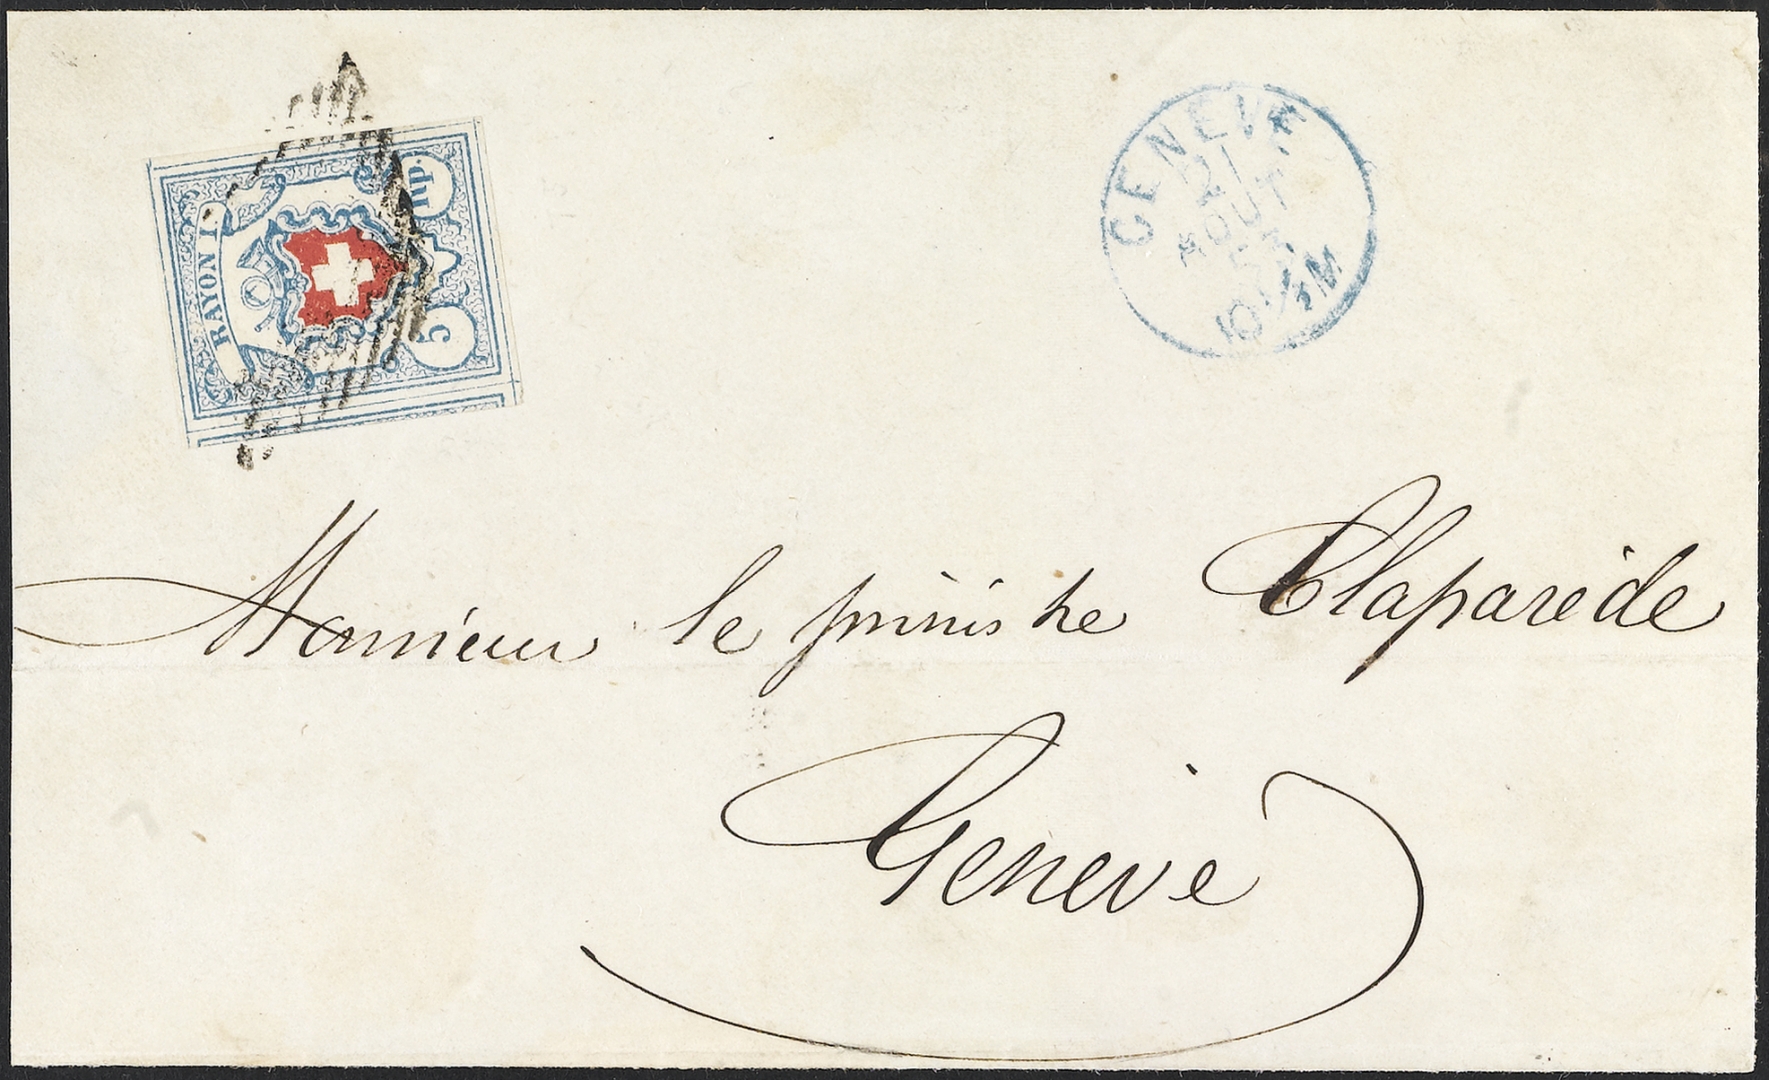 RAYON I.
5
Rp.
GENEVE
21
AOUT
53
10½M
Monsieur le ministre Claparède
Genève